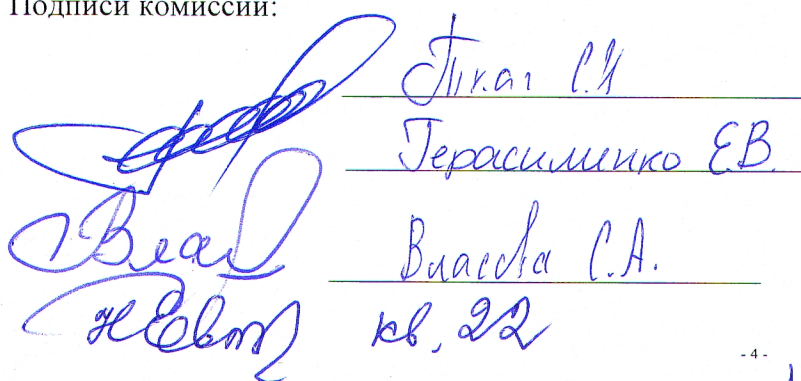 Подписи комиссии:
Ткач С.И
Герасименко Е.В.
Власова С.А.
кв. 22
- 4 -